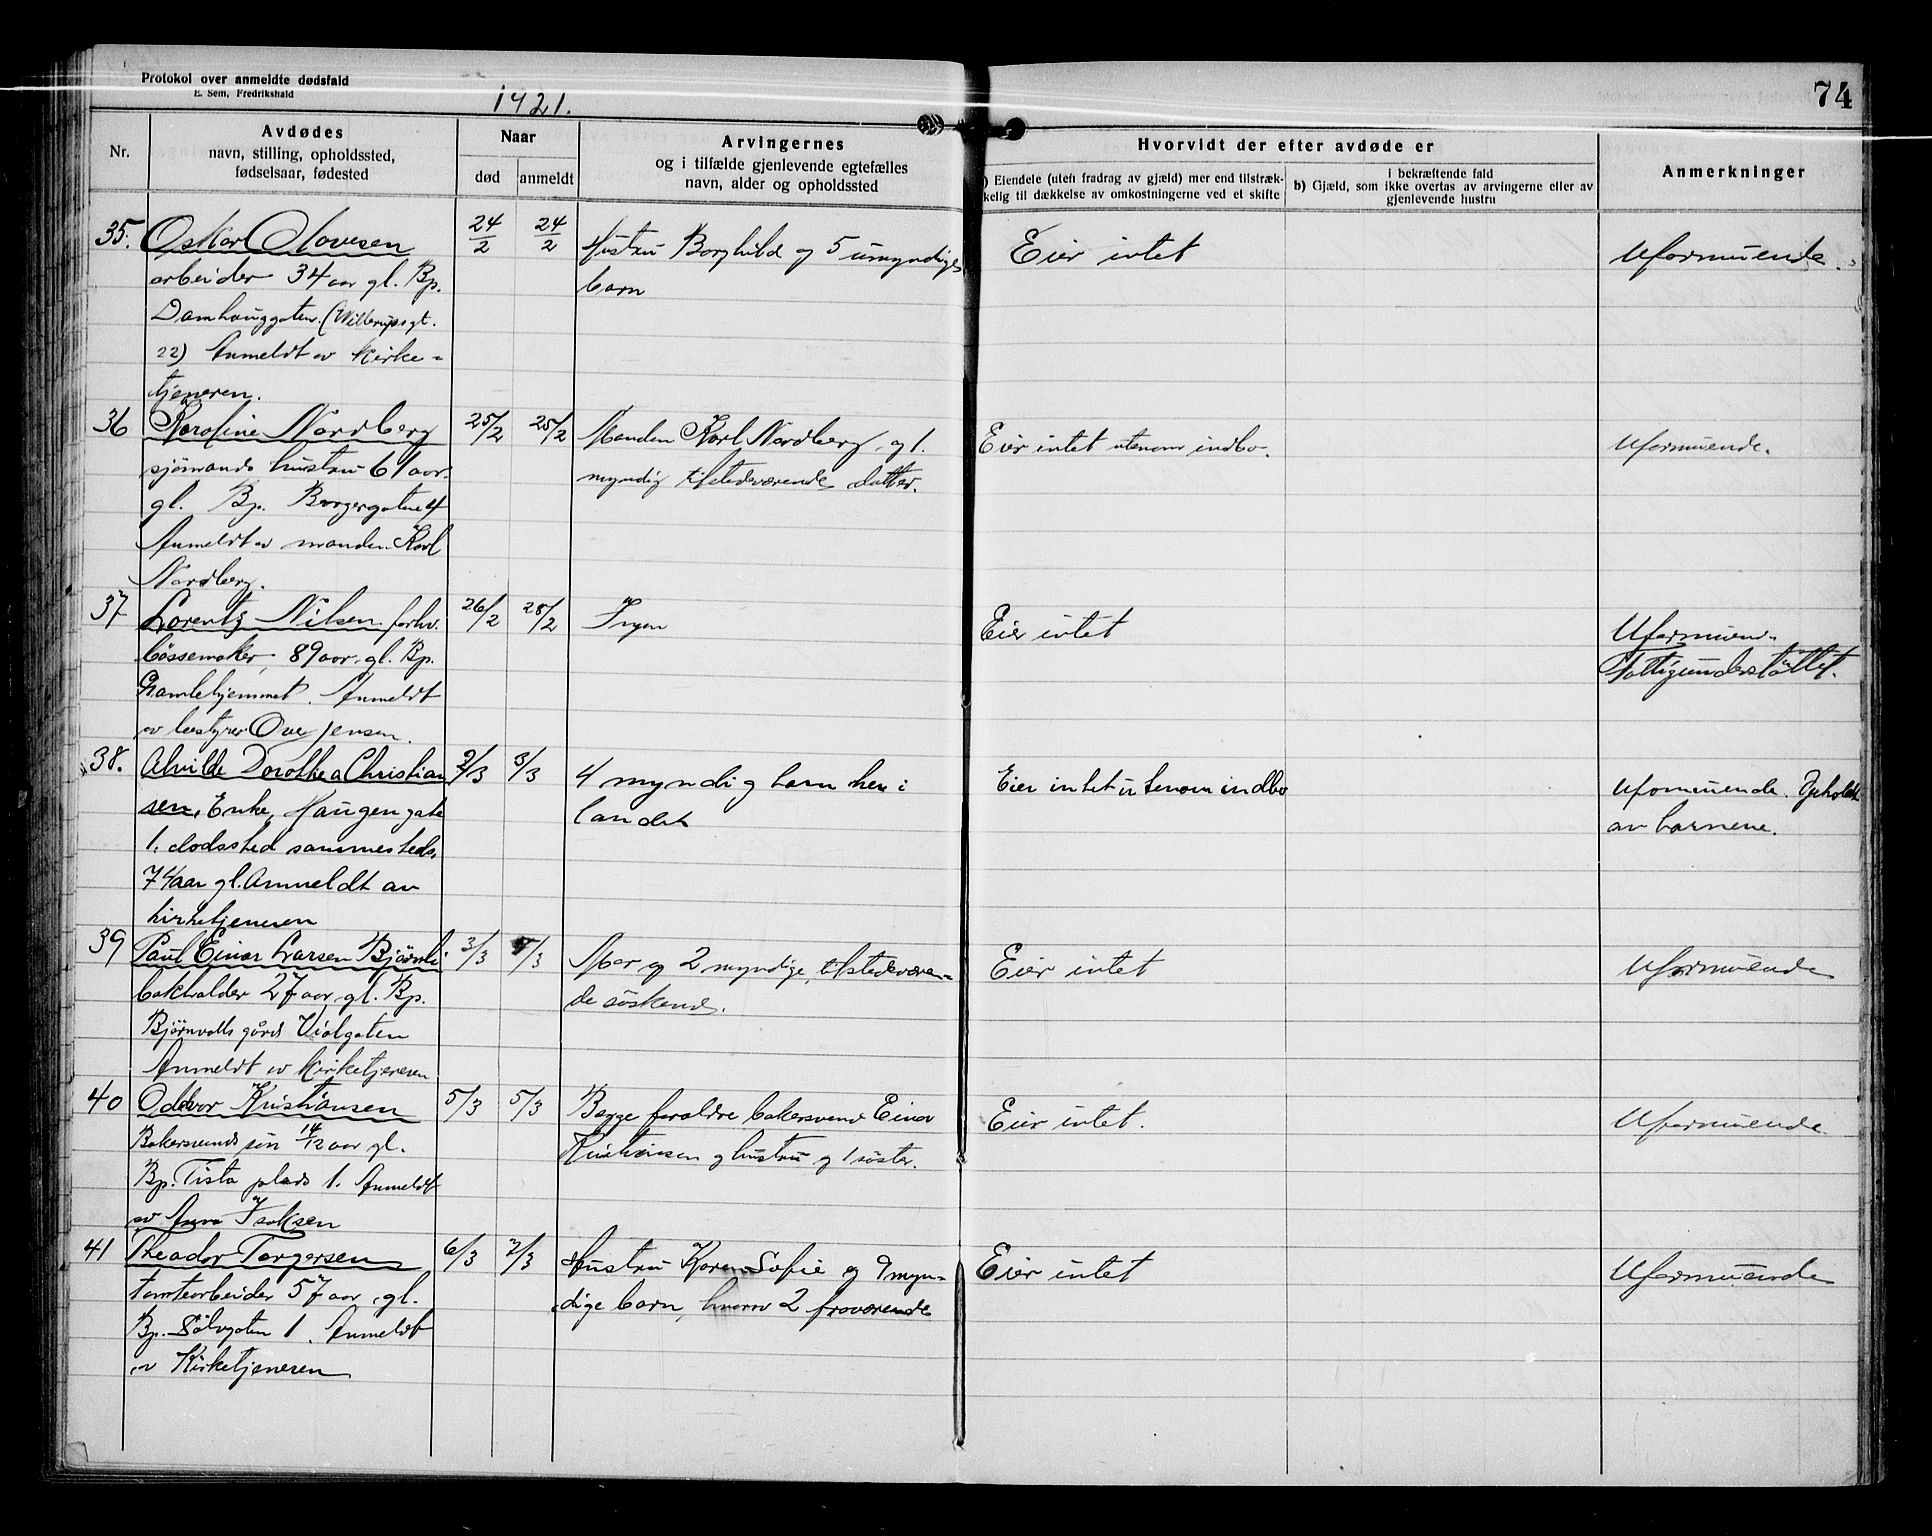 Protokol over anmeldte dødsfald
E. Sem, Fredrikshald
1921.
74
Nr.
Avdødes
navn, stilling, opholdssted,
fødselsaar, fødested
Naar
død
anmeldt
Arvingernes
og i tilfælde gjenlevende egtefælles
navn, alder og opholdssted
Hvorvidt der efter avdøde er
) Eiendele (uten fradrag av gjæld) mer end tilstræk-
kelig til dækkelse av omkostningerne ved et skifte
i bekræftende fald
b) Gjæld, som ikke overtas av arvingerne eller av
gjenlevende hustru
Anmerkninger
35. Oskar Olavesen
arbeider 34 aar gl. Bp.
Damhauggaten (Willerupsgt.
22) Anmeldt av kirke-
tjeneren.
24/2
24/2
Hustru Borghild og 5 umyndige
barn
Eier intet
Uformuende.
36 Karoline Nordberg
sjömands hustru 61 aar
gl. Bp. Borgergaten 4
Anmeldt av manden Karl
Nordberg.
25/2
25/2
Manden Karl Nordberg, og 1.
myndig tilstedeværende datter.
Eier intet utenom indbo.
Uformuende.
37 Lorentz Nilsen forhv.
bössemaker, 89 aar gl. Bp.
Gamlehjemmet. Anmeldt
av bestyrer Ove Jensen.
26/2
28/2
Ingen
Eier intet
Uformuend.
Fattigunderstöttet.
38. Alvilde Dorothea Christian
sen, Enke, Haugengate
1. dodssted sammesteds,
74 aar gl. Anmeldt av
kirketjeneren
2/3
3/3
4 myndig barn her i
landet
Eier intet utenom indbo
Uformuende. Opholdt
av barnene.
39 Paul Einar Larsen Bjørnli
bakholder 27 aar gl. Bp.
Bjørnvalls gård Violgaten
Anmeldt av Kirketjeneren
3/3
4/3
Mor og 2 myndige, tilstedeværen-
de söskend.
Eier intet
Uformuende
40 Oddvar Kristiansen
Bakersvends sön 14/12 aar gl.
Bp. Tista plads 1. Anmeldt
av Anna Isaksen
5/3
5/3
Begge foraldre bakersvend Einar
Kristiansen og hustru og 1 söster.
Eier intet.
Uformuende.
41 Theodor Torgersen
tomtearbeider 57 aar gl.
Bp. Sölvgaten 1. Anmeldt
av Kirketjeneren
6/3
7/3
Hustru Karen Sofie og 9 myn-
dige barn, hvorav 2 fraværende
Eier intet
Uformuende